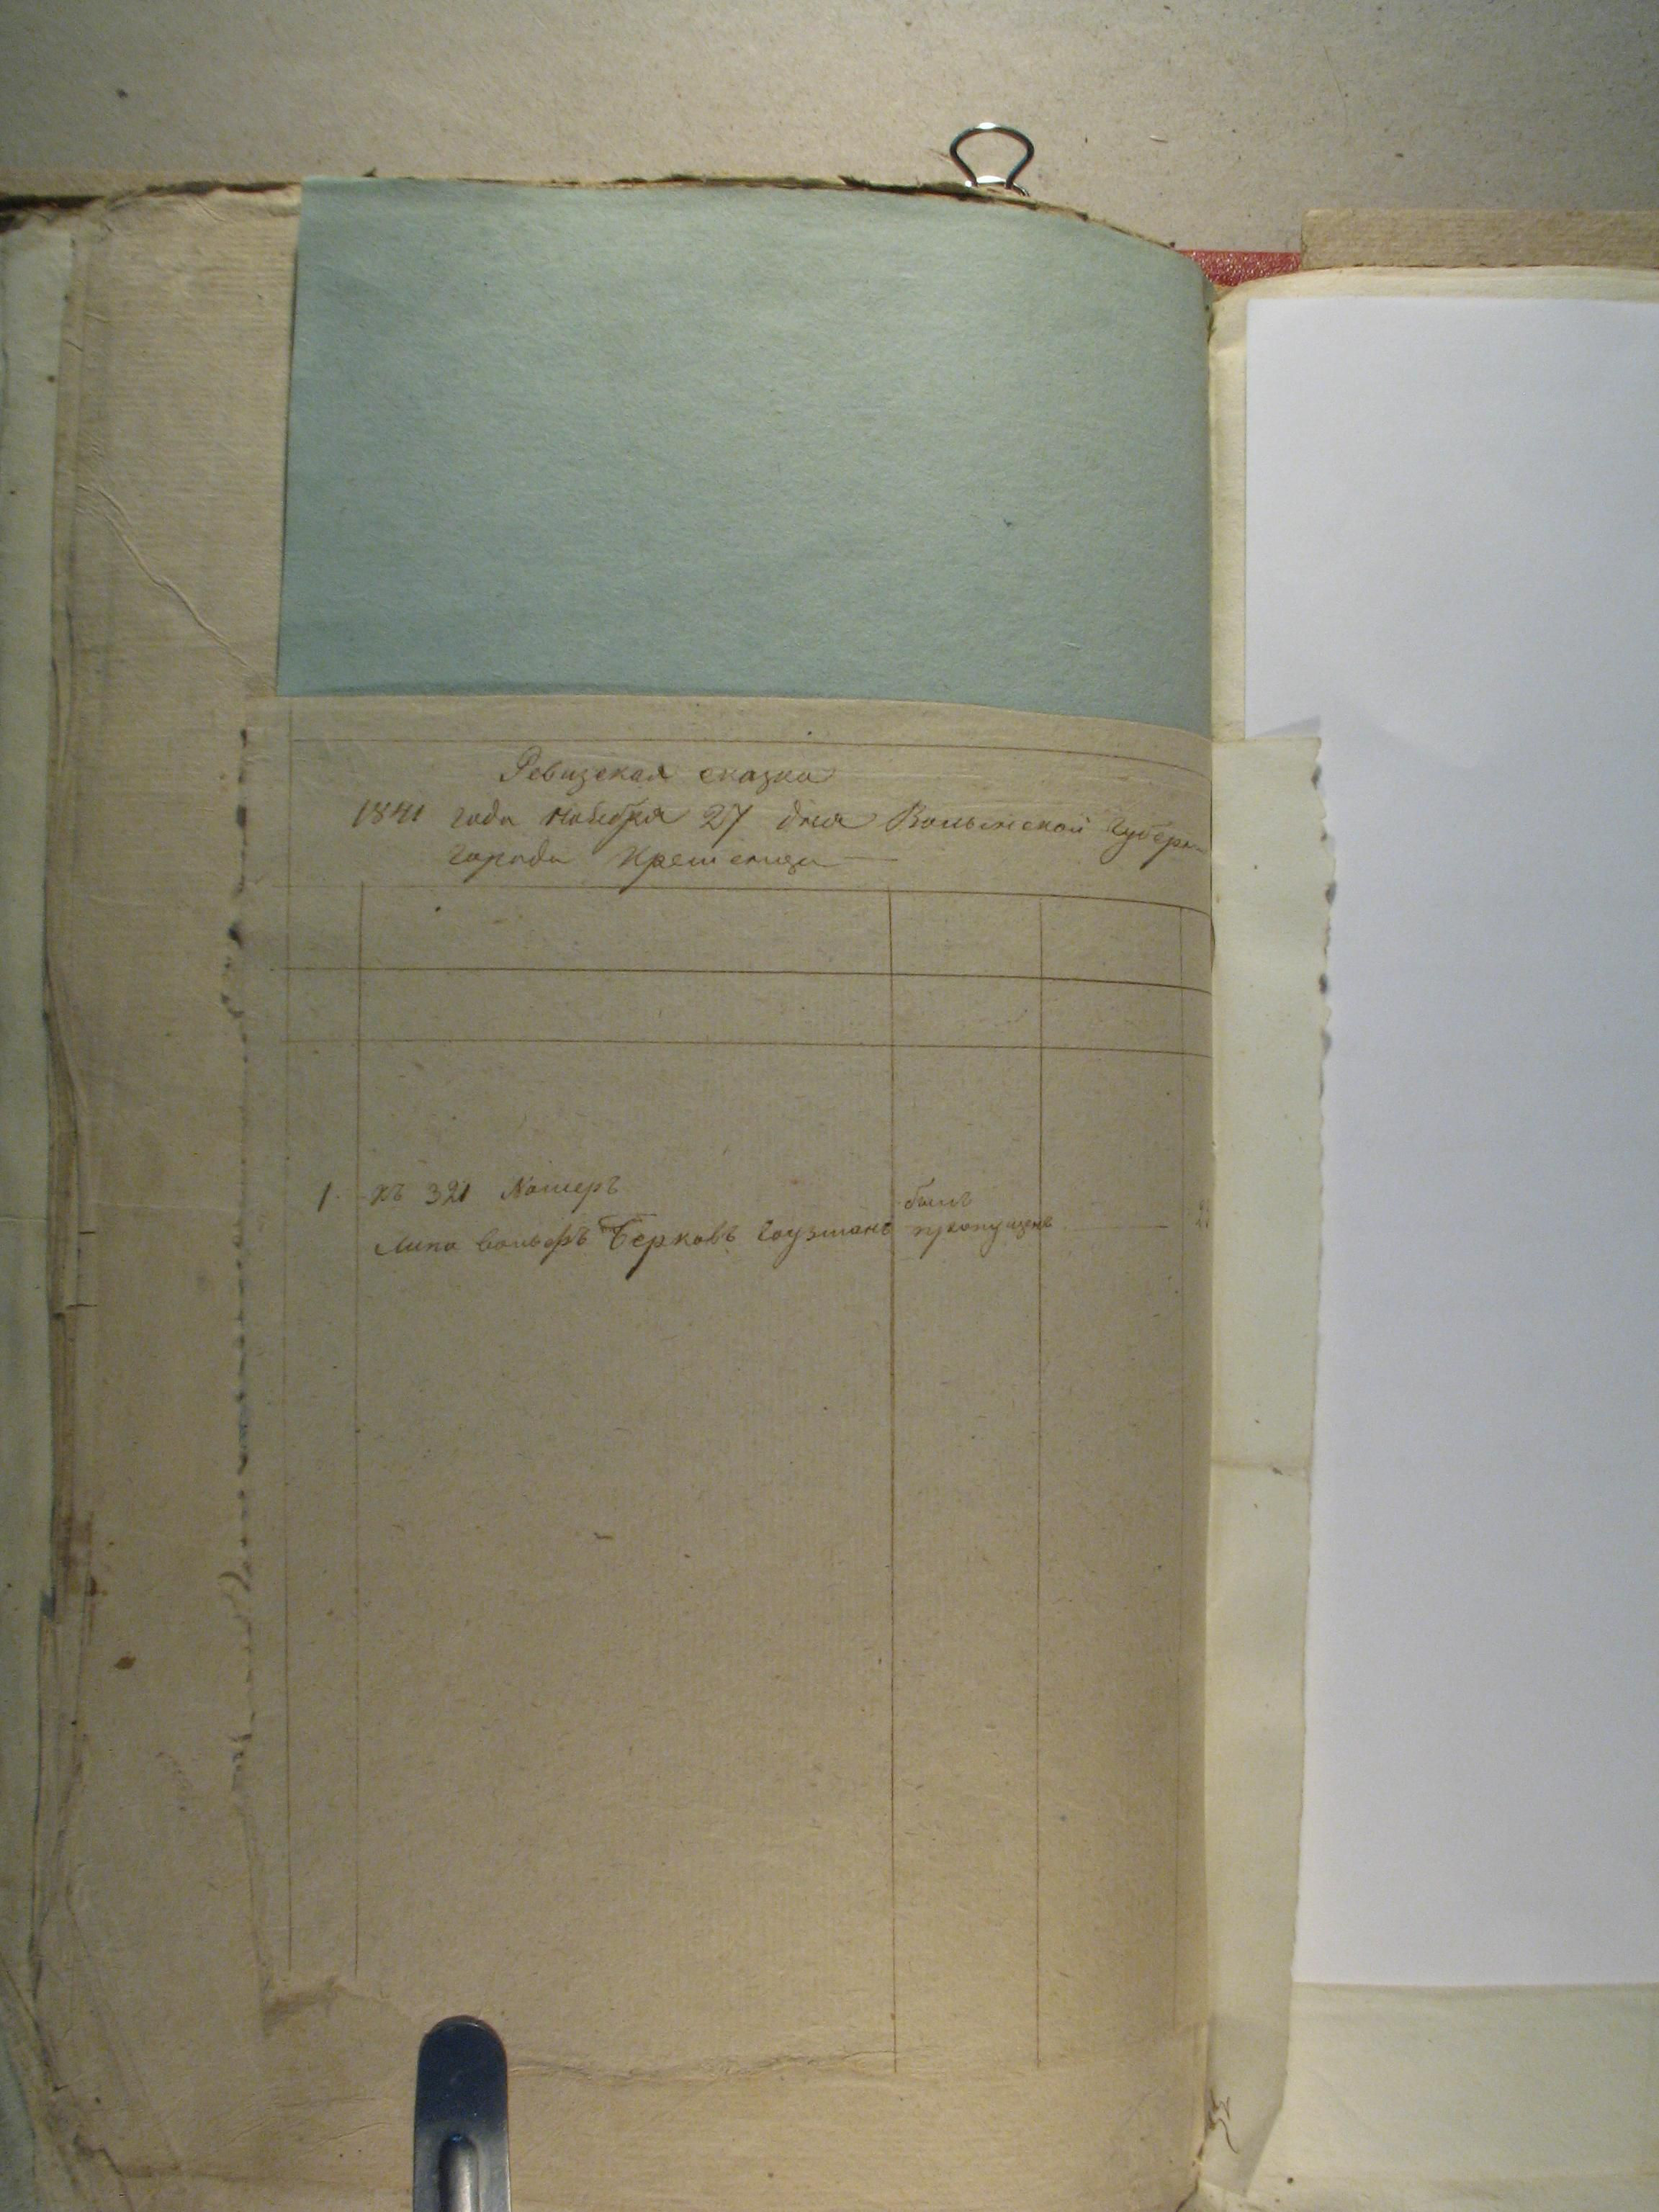 Ревизская сказка
1841 года Ноября 27 дня Волынской Губер
города Кременца
1. къ 321 Номеръ былъ
Липа Вольфъ Берковъ Гоузманъ пропущенъ